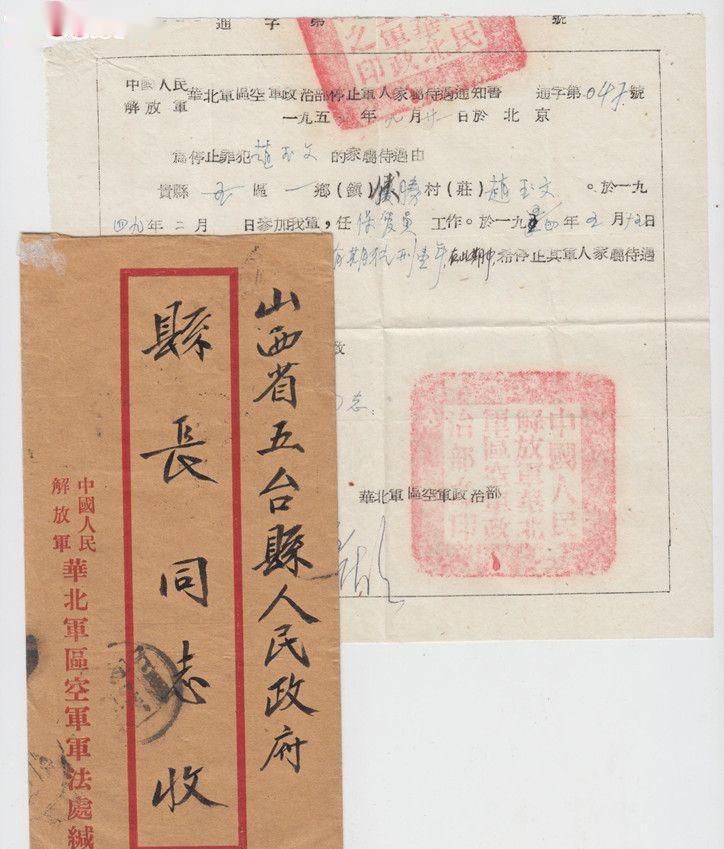 通字第 號
中國人民
解放軍 華北軍區空軍政治部停止軍人家屬待遇通知書 通字第 號
一九五 年九月廿一日於北京
為停止罪犯趙玉文的家屬待遇由
貴縣五區一鄉(鎮) 勝村(莊)趙玉文。於一九
四九年二月 日參加我軍,任保管員工作。於一九五 年五月十五日
有期徒刑壹年在此期中希停止其軍人家屬待遇
致
志:
華北軍區空軍政治部
中國人民
解放軍華北
軍區空軍政
治部之印
山西省五台縣人民政府
縣長同志收
中國人民
解放軍 華北軍區空軍軍法處緘